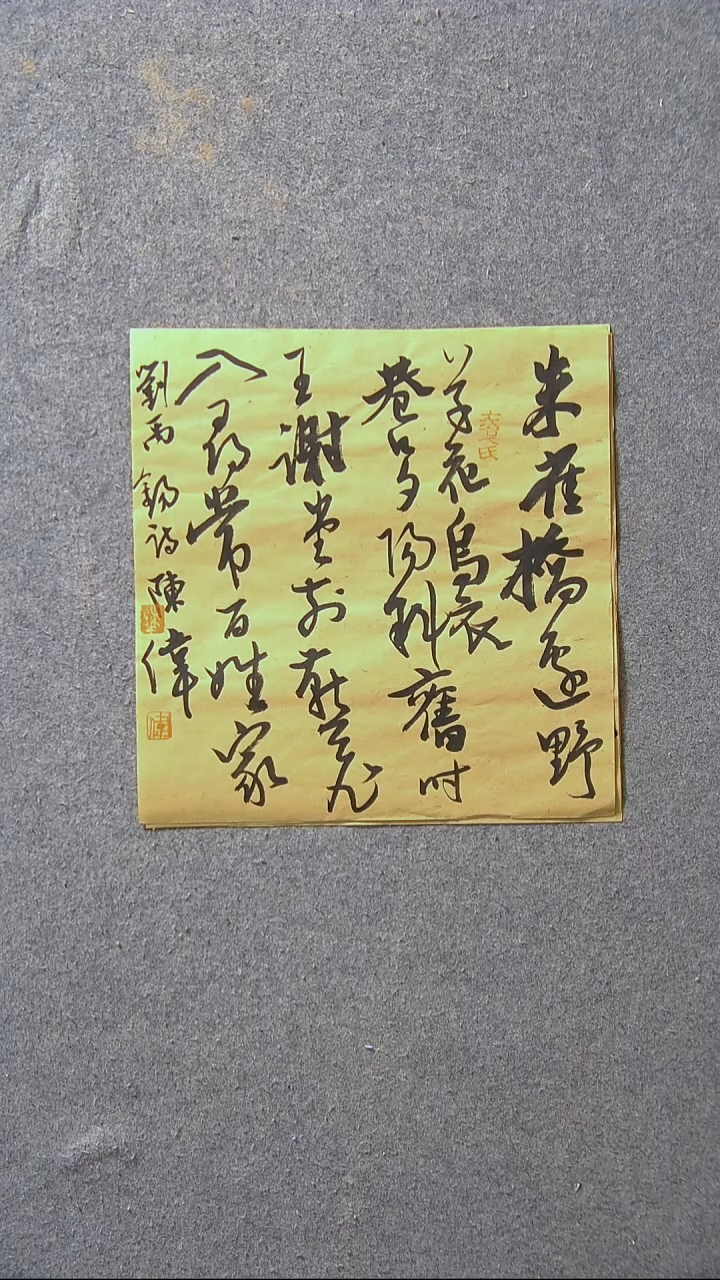 朱雀橋邊野
草花烏衣
巷口夕陽斜舊時
王謝堂前燕飛
入尋常百姓家
劉禹錫詩陳偉
偉